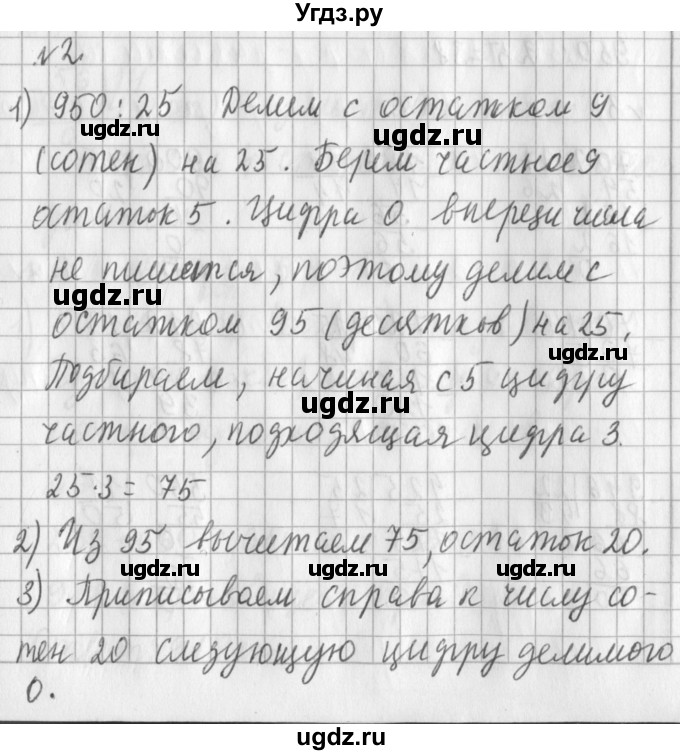 Угдз.ру
№2.
1) 950:25 Делим с остатком 9
ugdz.ru ugdz.ru
(сотен) на 25. Берем частное 9
остаток 5. Цифра 0 впереди числа
не пишется, поэтому делим с
ugdz.ru ugdz.ru
остатком 95 (десятков) на 25.
ugdz.ru
Подбираем, начиная с 5 цифру
ugdz.ru
частного, подходящая цифра 3.
25·3 = 75
2) Из 95 вычитаем 75, остаток 20.
ugdz.ru ugdz.ru ugdz.ru
3) Приписываем справа к числу со-
тен 20 следующую цифру делимого
ugdz.ru ugdz.ru
0.
ugdz.ru